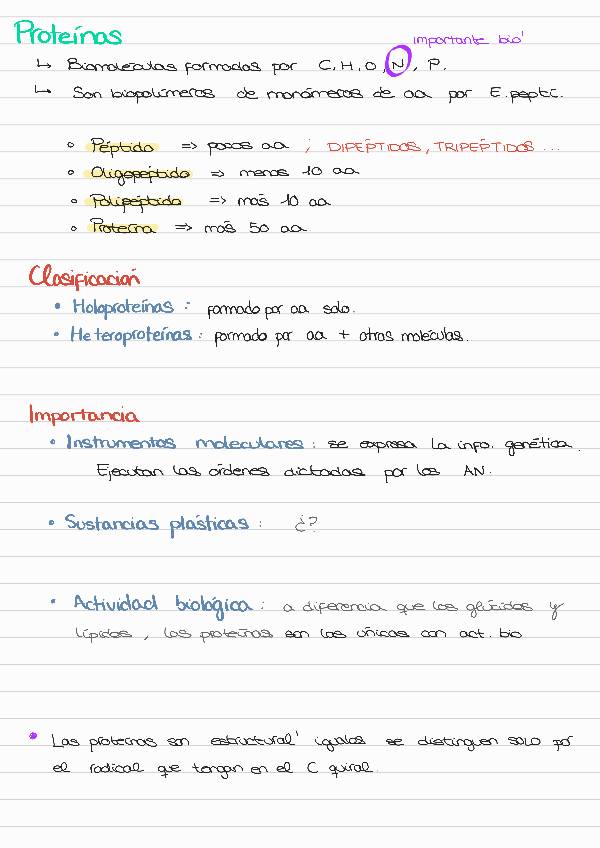 Proteínas
importante bio'
↳ Biomoléculas formadas por C, H, O, N, P.
↳ Son biopolímeros de monómeros de aa por E. peptíc.
◦ Péptido => pocos aa ; DIPÉPTIDOS, TRIPÉPTIDOS ...
◦ Oligopéptido => menos 10 aa
◦ Polipéptido => más 10 aa
◦ Proteína => más 50 aa
Clasificación
• Holoproteínas : formado por aa solo.
• Heteroproteínas : formado por aa + otras moléculas.
Importancia
• Instrumentos moleculares : se expresa la info. genética.
Ejecutan las órdenes dictadas por los AN.
• Sustancias plásticas : ¿?
• Actividad biológica : a diferencia que los glúcidos y
lípidos , las proteínas son las únicas con act. bio
• Las proteínas son estructural' iguales se distinguen solo por
el radical que tengan en el C quiral.